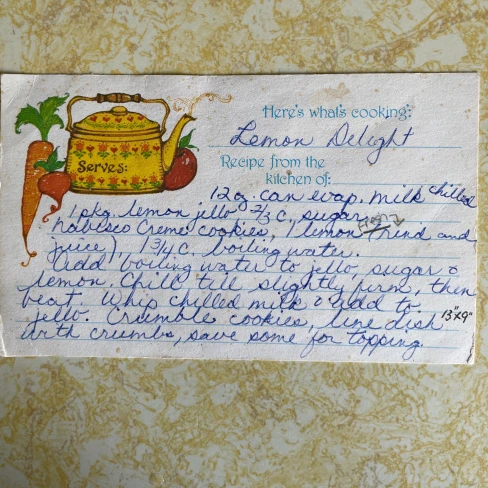 Here's what's cooking:
Lemon Delight
Serves:
Recipe from the
kitchen of:
12 oz. can evap. milk chilled
1 pkg. lemon jello 2/3 c. sugar,
nabisco creme cookies, 1 lemon (rind and
juice), 1 3/4 c. boiling water.
Add boiling water to jello, sugar &
lemon. Chill till slightly firm, then
beat. Whip chilled milk & add to
jello. Crumble cookies, line dish 13"x9"
with crumbs, save some for topping.